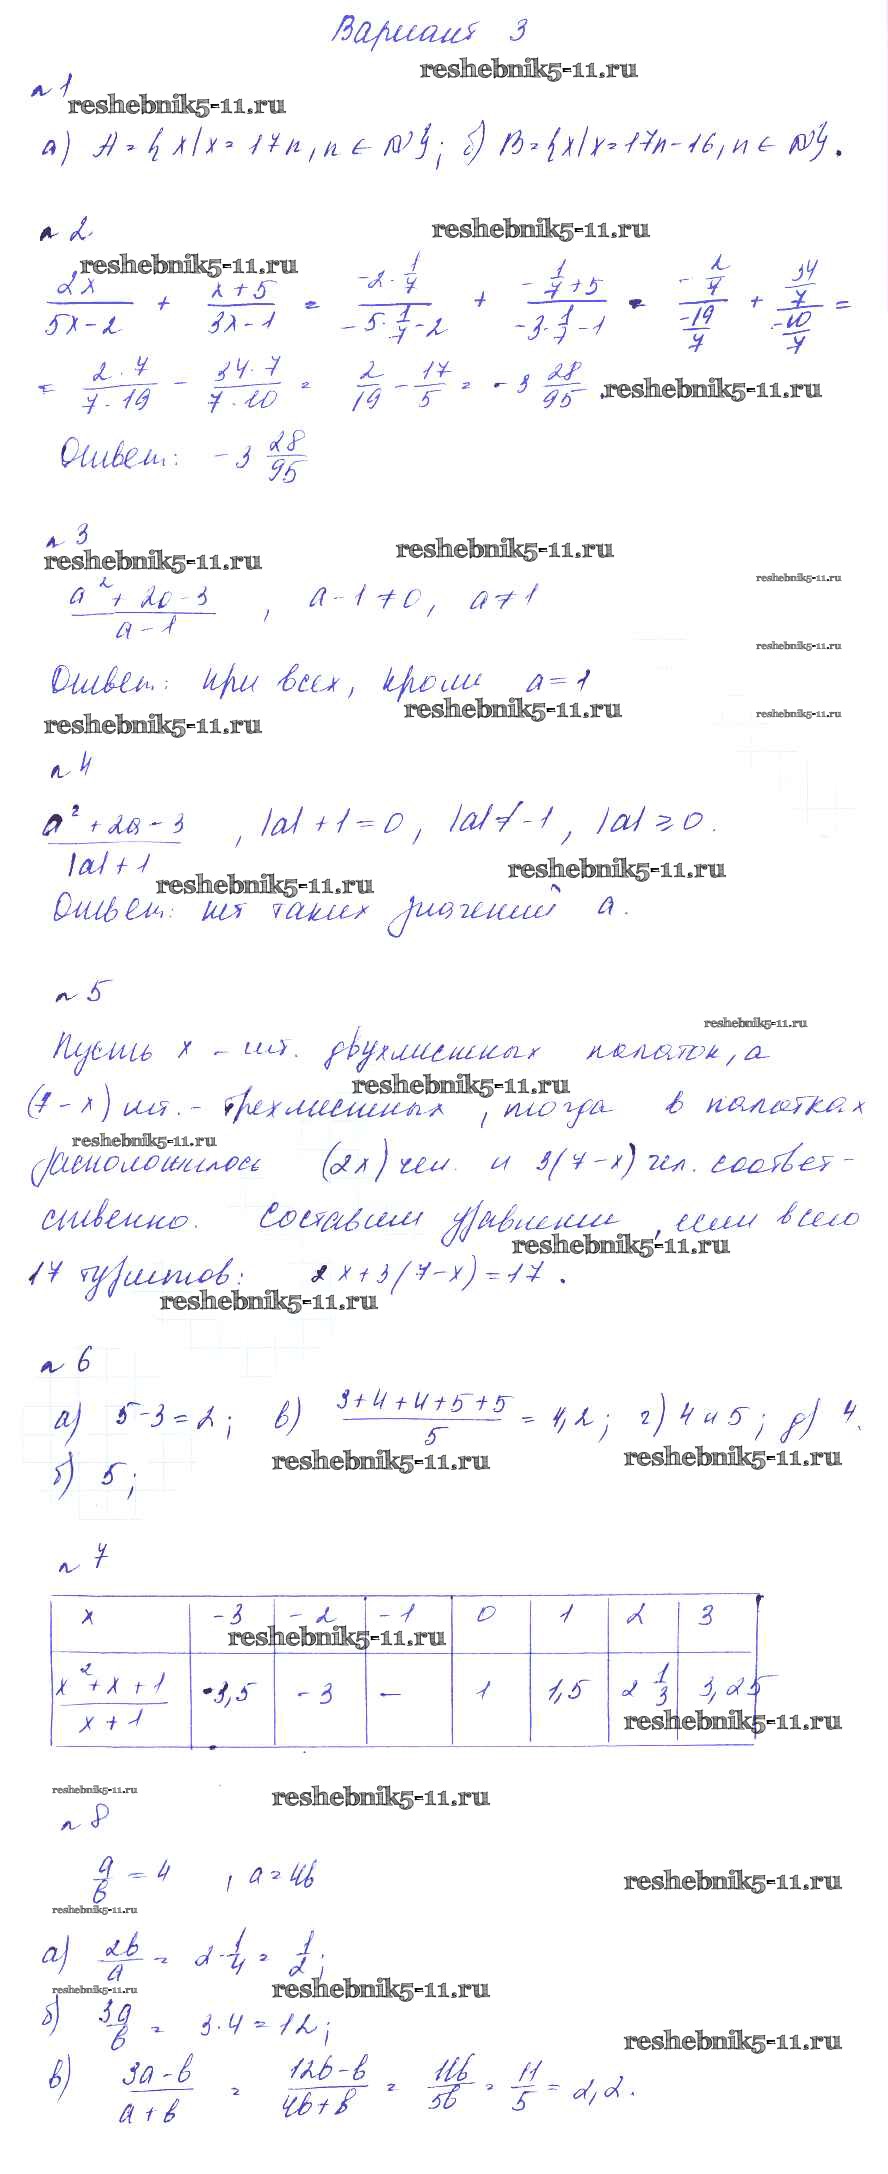 Вариант 3
reshebnik5-11.ru
№1
reshebnik5-11.ru
а) A = {x|x = 17n, n ∈ N}; б) B = {x|x = 17n-16, n ∈ N}.
№2.
reshebnik5-11.ru
reshebnik5-11.ru
2x/(5x-2) + (x+5)/(3x-1) = (-2·1/7)/(-5·1/7-2) + (-1/7+5)/(-3·1/7-1) = (-2/7)/(-19/7) + (34/7)/(-10/7) =
= (2·7)/(7·19) - (34·7)/(7·10) = 2/19 - 17/5 = -3 28/95. reshebnik5-11.ru
Ответ: -3 28/95
№3
reshebnik5-11.ru reshebnik5-11.ru
reshebnik5-11.ru
(a²+2a-3)/(a-1), a-1≠0, a≠1
reshebnik5-11.ru
Ответ: при всех, кроме a=1
reshebnik5-11.ru reshebnik5-11.ru reshebnik5-11.ru
№4
(a²+2a-3)/(|a|+1), |a|+1=0, |a|≠-1, |a|≥0.
reshebnik5-11.ru reshebnik5-11.ru
Ответ: нет таких значений a.
№5
reshebnik5-11.ru
Пусть x - шт. двухместных палаток, а
reshebnik5-11.ru
(7-x) шт. - трехместных, тогда в палатках
reshebnik5-11.ru
расположилось (2x) чел. и 3(7-x) чел. соответ-
ственно. Составим уравнение, если всего
reshebnik5-11.ru
17 туристов: 2x+3(7-x)=17.
reshebnik5-11.ru
№6
а) 5-3=2; в) (3+4+4+5+5)/5 = 4,2; г) 4 и 5; д) 4.
reshebnik5-11.ru reshebnik5-11.ru
б) 5;
№7
x -3 -2 -1 0 1 2 3
reshebnik5-11.ru
(x²+x+1)/(x+1) -3,5 -3 — 1 1,5 2 1/3 3,25
reshebnik5-11.ru
reshebnik5-11.ru reshebnik5-11.ru
№8
a/b = 4, a=4b
reshebnik5-11.ru
reshebnik5-11.ru
а) 2b/a = 2·1/4 = 1/2;
reshebnik5-11.ru reshebnik5-11.ru
б) 3a/b = 3·4=12;
reshebnik5-11.ru
в) (3a-b)/(a+b) = (12b-b)/(4b+b) = 11b/5b = 11/5 = 2,2.